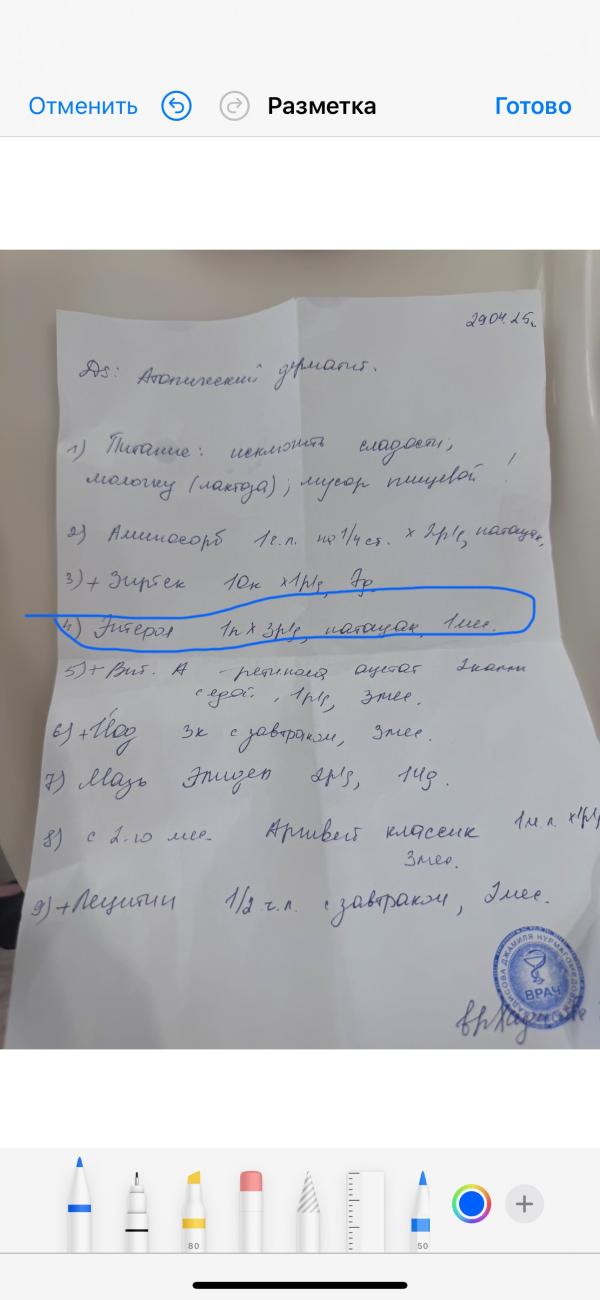 Отменить Разметка Готово
29.04.25г
Ds: Атопический дерматит.
1) Питание: исключить сладости,
молочку (лактоза), мусор пищевой !
2) Аминосорб 1ч.л. на 1/4 ст. x 2р/д, натощак,
3) + Зиртек 10к x1р/д, 7д.
4) Энтерол 1п x 3р/д, натощак, 1 мес.
5) + Вит. А - ретинола ацетат 2 капли
с едой, 1р/д, 3 мес.
6) + Йод 3к с завтраком, 3 мес.
7) Мазь 2р/д, 14д.
8) с 2-го мес. классик 1 ч.л. x1р/д
3 мес.
9) + Лецитин 1/2 ч.л. с завтраком, 2 мес.
ДЖАМИЛЯ НУРМАГОМЕДОВНА
ВРАЧ
80
50